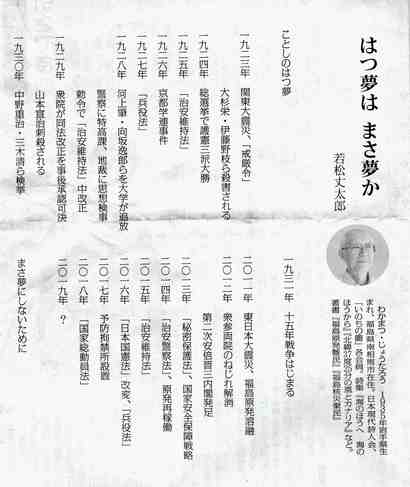 はつ夢は まさ夢か
若松丈太郎
わかまつ・じょうたろう 1935年岩手県生
まれ、福島県南相馬市在住。日本現代詩人会、
「いのちの籠」各会員。詩集『海のほうへ 海の
ほうから』『北緯37度25分の風とカナリア』など。
著書『福島原発難民』『福島核災棄民』
ことしのはつ夢
一九二三年 関東大震災、「戒厳令」
大杉栄・伊藤野枝ら殺害される
一九二四年 総選挙で護憲三派大勝
一九二五年 「治安維持法」
一九二六年 京都学連事件
一九二七年 「兵役法」
一九二八年 河上肇・向坂逸郎らを大学が追放
警察に特高課、地裁に思想検事
勅令で「治安維持法」中改正
一九二九年 衆院が同法改正を事後承認可決
山本宣治刺殺される
一九三〇年 中野重治・三木清ら検挙
一九三一年 十五年戦争はじまる
二〇一一年 東日本大震災、福島原発溶融
二〇一二年 衆参両院のねじれ解消
第二次安倍晋三内閣発足
二〇一三年 「秘密保護法」、国家安全保障戦略
二〇一四年 「治安警察法」、原発再稼働
二〇一五年 「治安維持法」
二〇一六年 「日本国憲法」改変、「兵役法」
二〇一七年 予防拘禁所設置
二〇一八年 「国家総動員法」
二〇一九年 ?
まさ夢にしないために